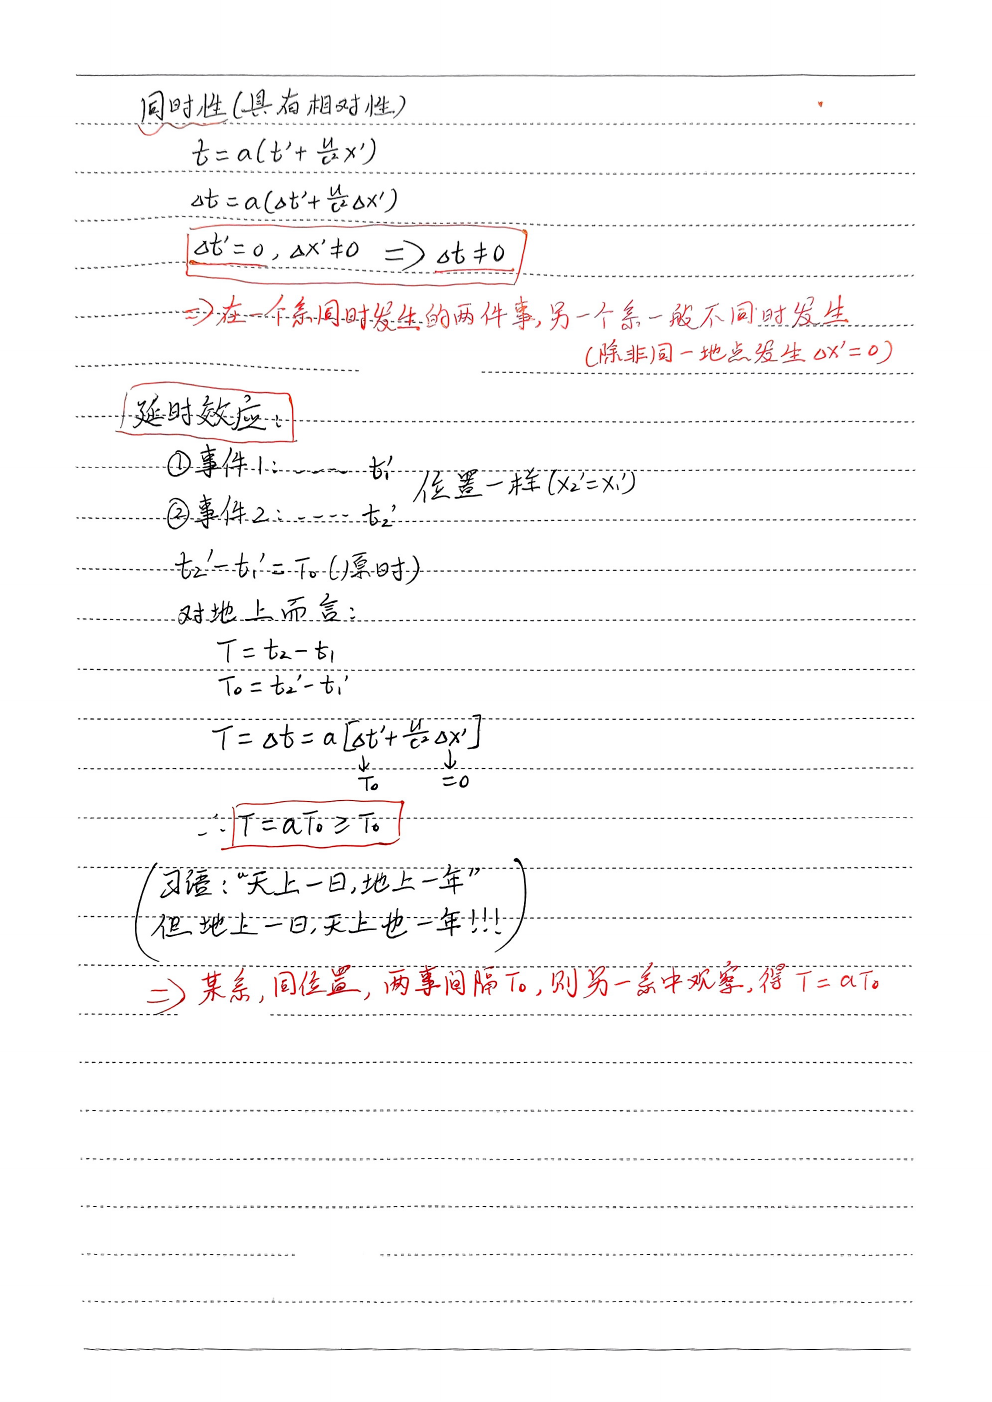 同时性(具有相对性)
t = a(t' + u/c² x')
Δt = a(Δt' + u/c² Δx')
Δt' = 0, Δx' ≠ 0 ⇒ Δt ≠ 0
⇒ 在一个系同时发生的两件事,另一个系一般不同时发生
(除非同一地点发生 Δx' = 0)
延时效应:
①事件1: ---- t₁'
位置一样(x₂' = x₁')
②事件2: ---- t₂'
t₂' - t₁' = T₀ (原时)
对地上而言:
T = t₂ - t₁
T₀ = t₂' - t₁'
T = Δt = a[Δt' + u/c² Δx']
↓ ↓
T₀ =0
∴ T = aT₀ ≥ T₀
(习语:“天上一日,地上一年”
但地上一日,天上也一年!!!)
⇒ 某系,同位置,两事间隔T₀,则另一系中观察,得 T = aT₀